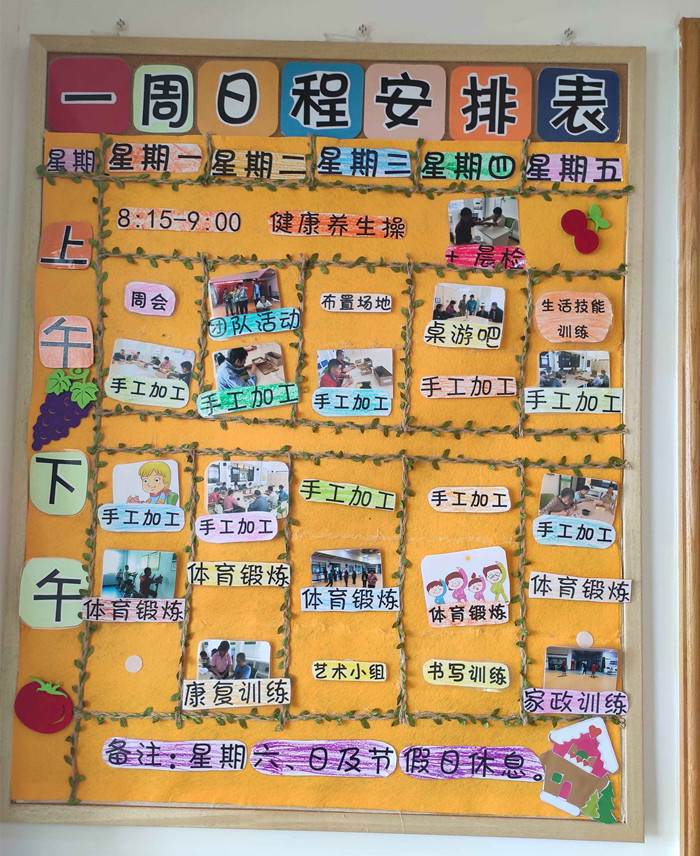 一周日程安排表
星期 星期一 星期二 星期三 星期四 星期五
上午
8:15-9:00 健康养生操 + 晨检
周会 团队活动 布置场地 桌游吧 生活技能
训练
手工加工 手工加工 手工加工 手工加工 手工加工
下午
手工加工 手工加工 手工加工 手工加工 手工加工
体育锻炼 体育锻炼 体育锻炼 体育锻炼 体育锻炼
康复训练 艺术小组 书写训练 家政训练
备注：星期六、日及节假日休息。